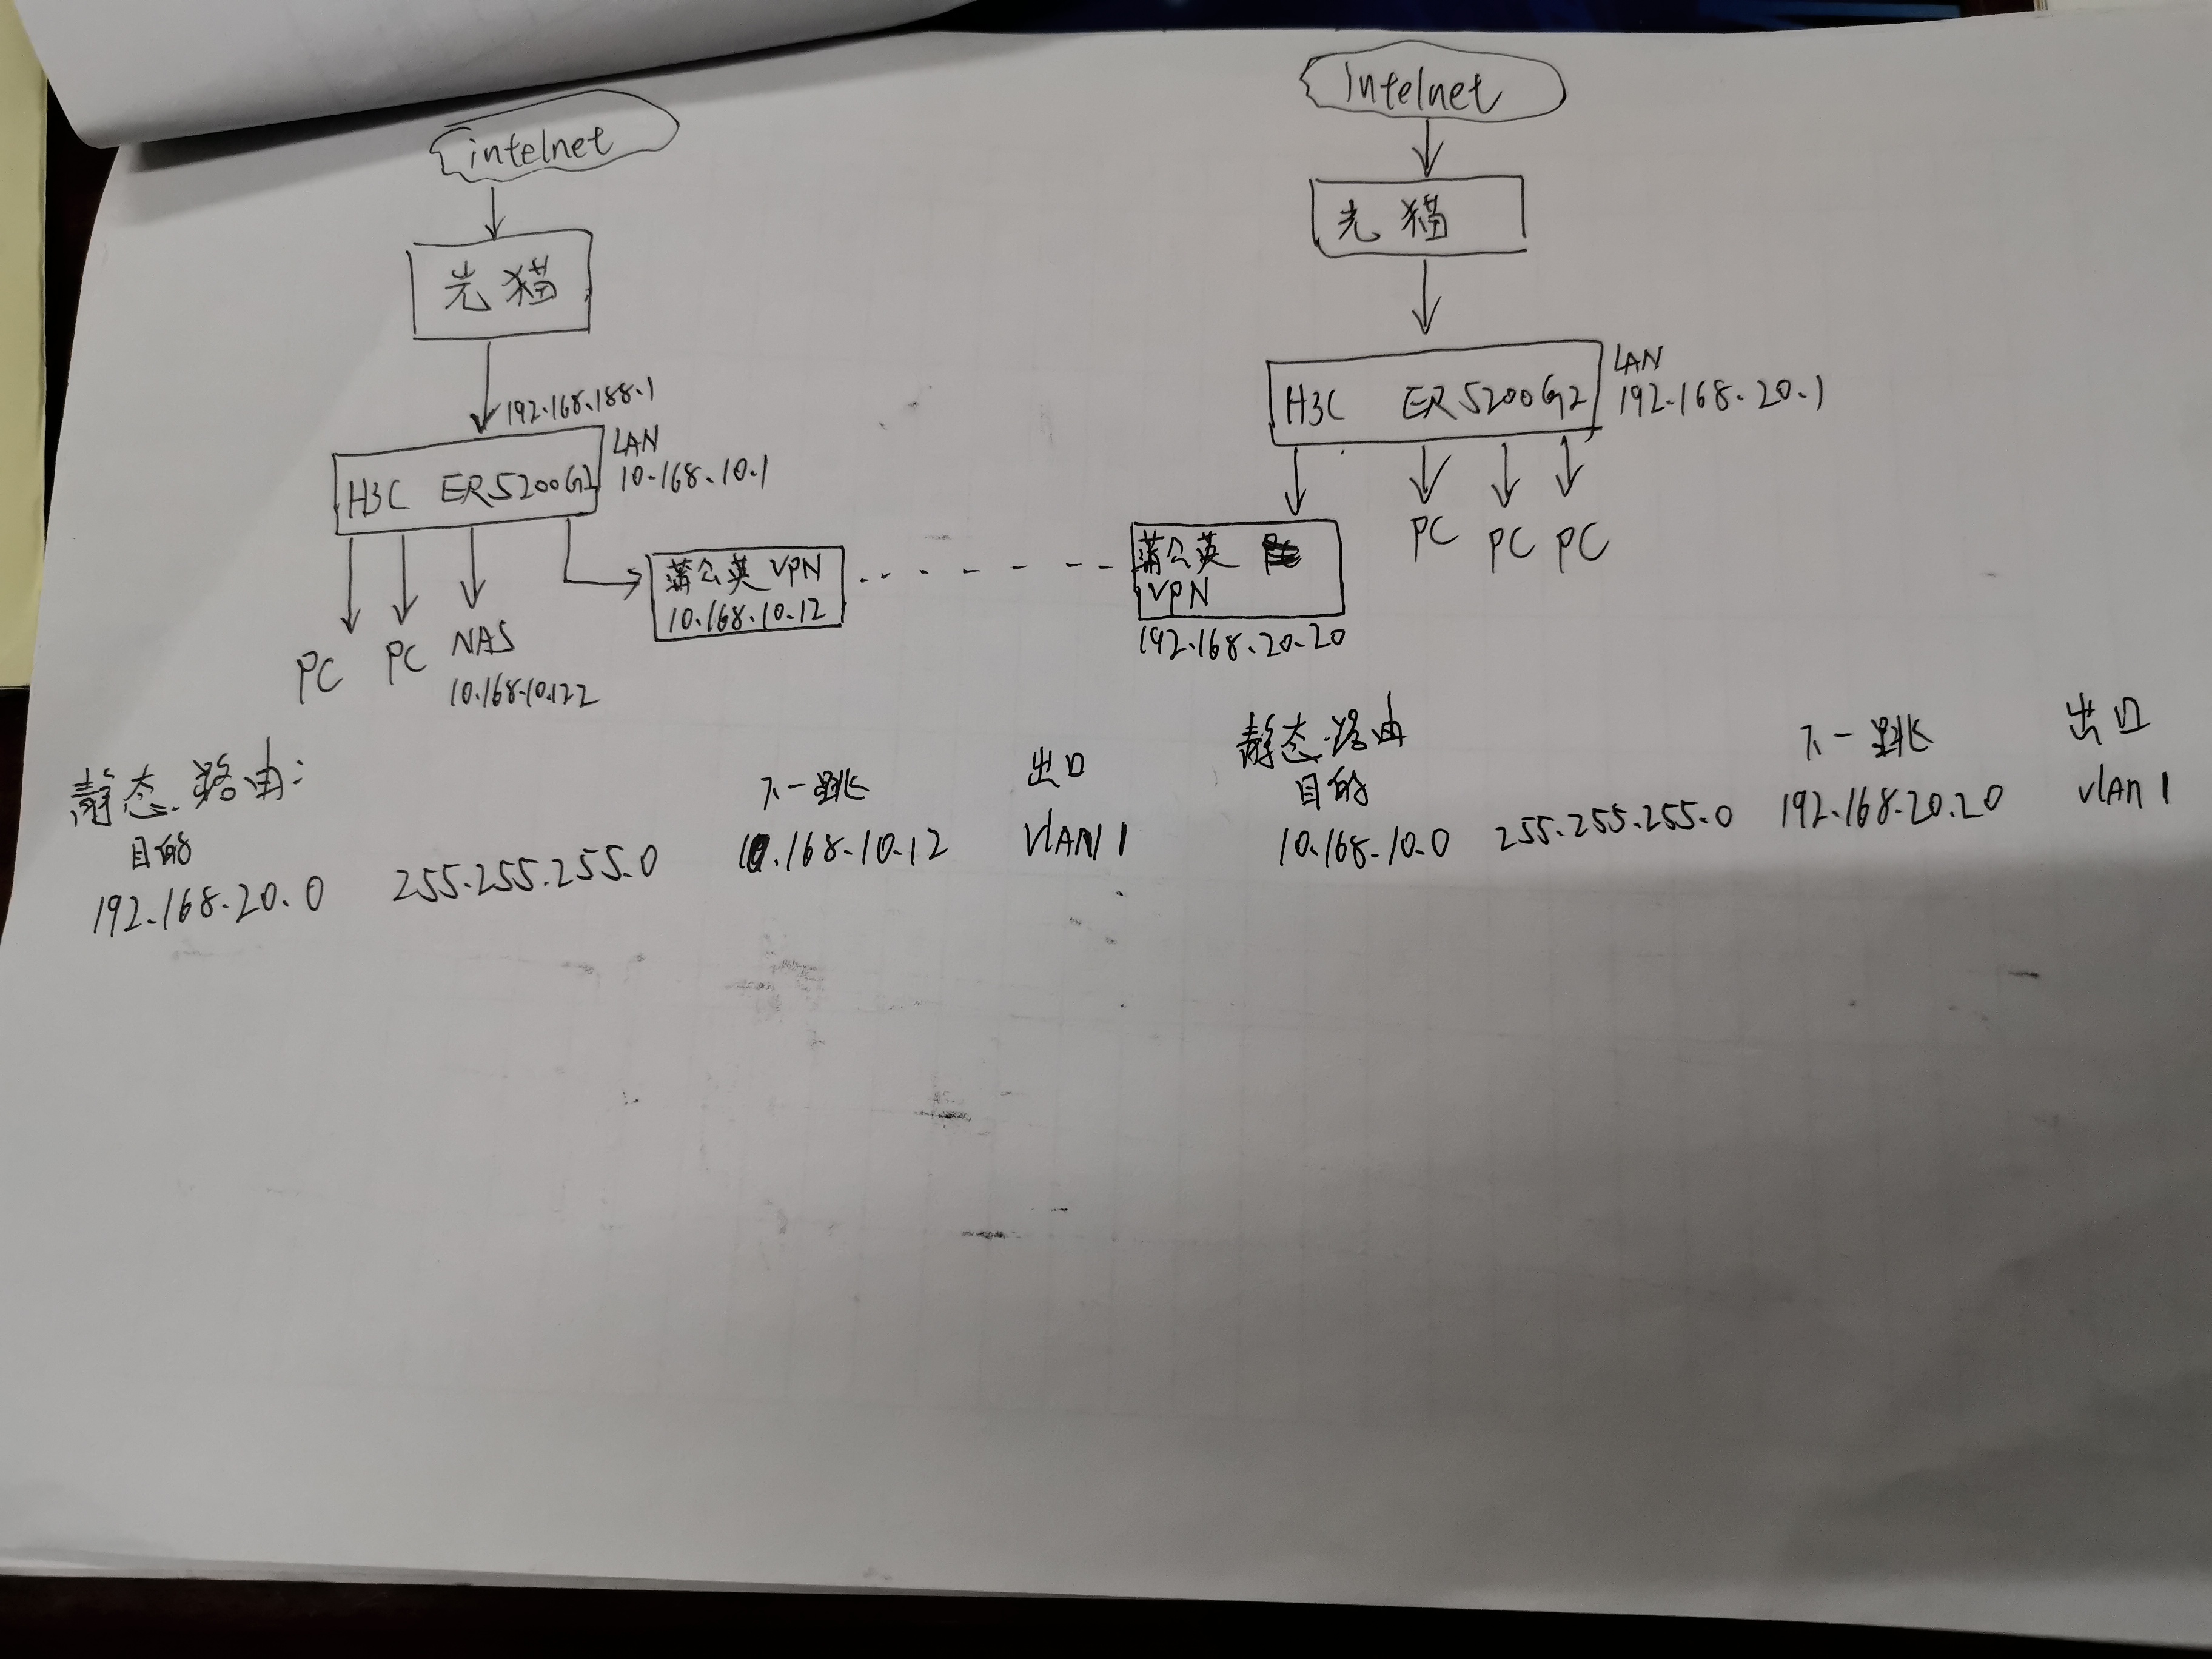 intelnet
光猫
192.168.188.1
H3C ER5200G2
LAN
10.168.10.1
PC
PC
NAS
10.168.10.122
蒲公英 VPN
10.168.10.12
静态路由:
目的
下一跳
出口
192.168.20.0 255.255.255.0 10.168.10.12 VLAN 1
Intelnet
光猫
H3C ER5200G2
LAN
192.168.20.1
PC
PC
PC
蒲公英
VPN
192.168.20.20
静态路由
目的
下一跳
出口
10.168.10.0 255.255.255.0 192.168.20.20 VLAN 1